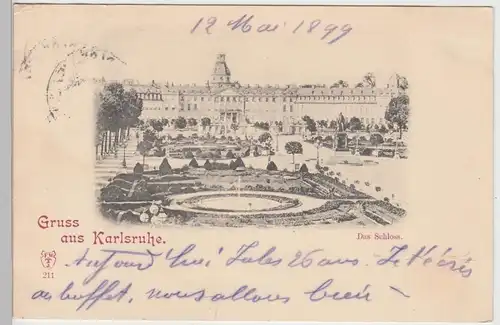 12 Mai 1899
Gruss
aus Karlsruhe.
Das Schloss.
211
Aujourd'hui Jules 26 ans.
au buffet, nous allons bien –